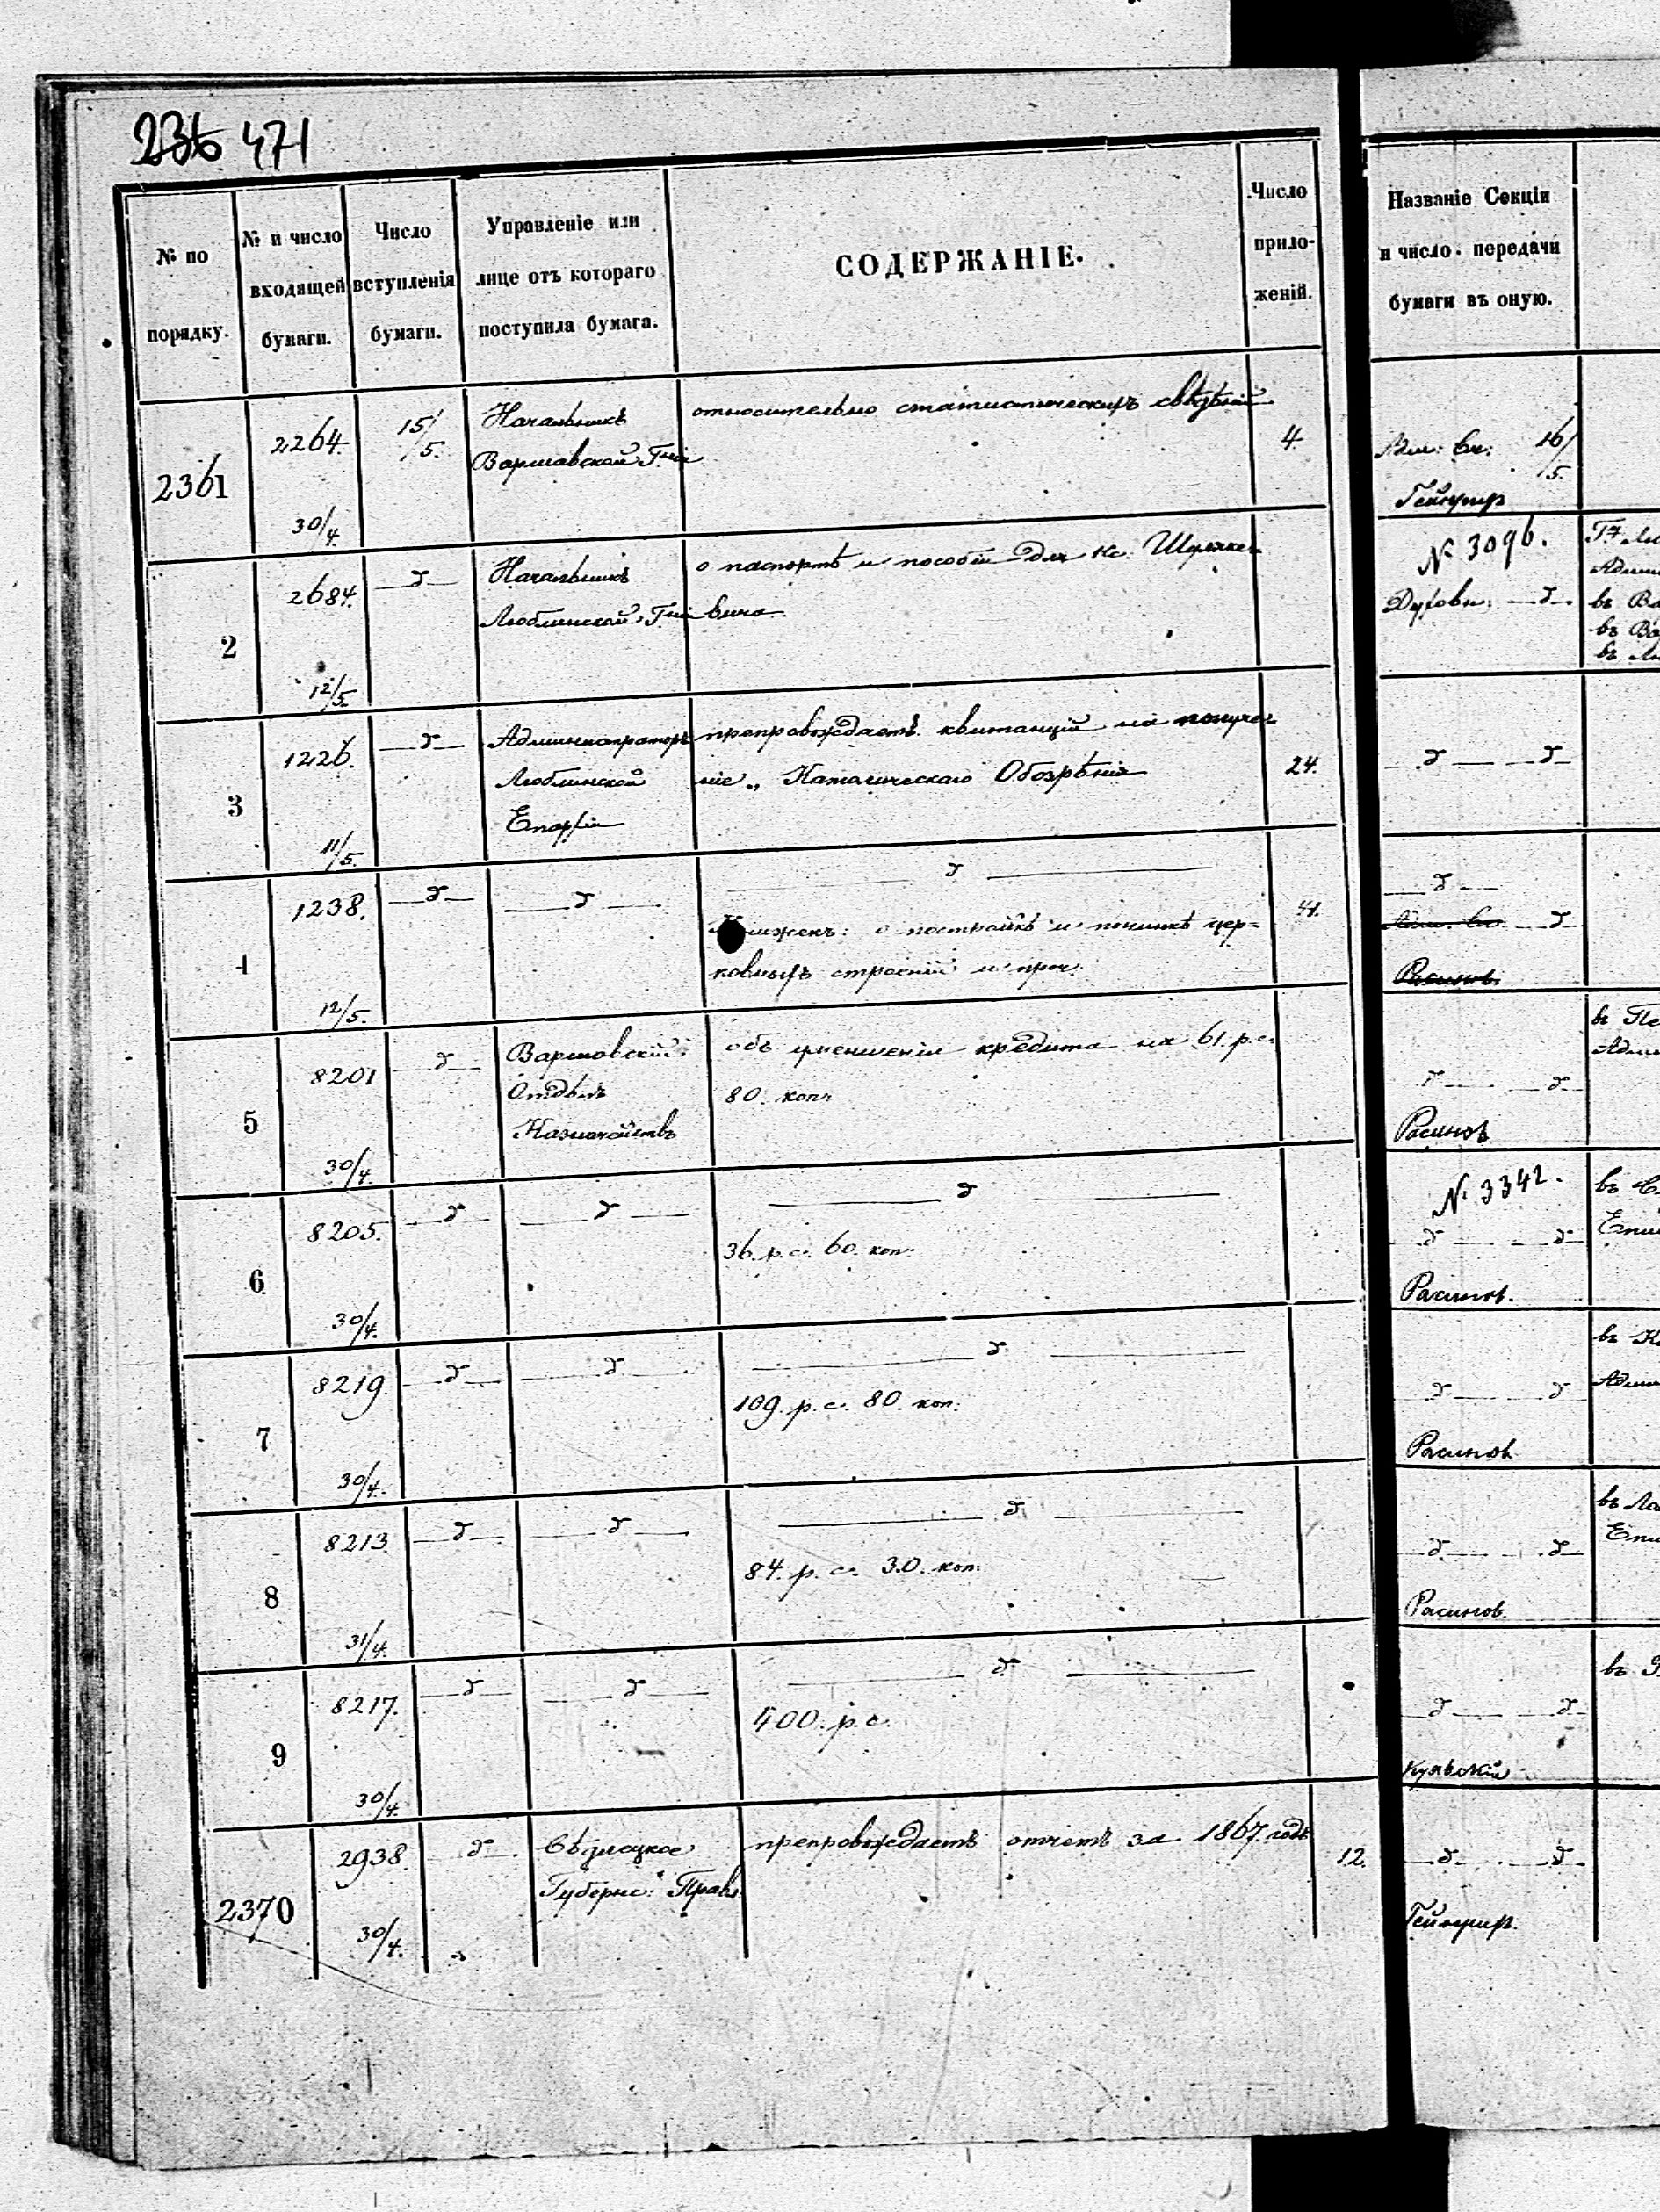 236 471
№ по
порядку.
№ и число
входящей
бумаги.
Число
вступленія
бумаги.
Управленіе или
лице отъ котораго
поступила бумага.
СОДЕРЖАНІЕ.
Число
прило-
женій.
Названіе Секціи
и число передачи
бумаги въ оную.
2361
2264.
30/4.
15/5.
Начальникъ
Варшавской Гніи
относительно статистическихъ свѣдѣній
4.
Адм: Ск: 16/5.
2
2684.
12/5.
—д—
Начальникъ
Люблинской Гніи
о паспортѣ и пособіи для Кс.
вича
№ 3096.
Духовн. —д—
Адми
въ Ва
въ Ва
въ Лю
3
1226.
11/5.
—д—
Администраторъ
Люблинской
Епархіи
препровождаетъ квитанціи на получе-
ніе „Католическаго Обозрѣнія
24.
—д— —д—
4
1238.
12/5.
—д—
—д—
—д—
о постройкѣ и починкѣ цер=
ковныхъ строеній и проч.
41.
—д—
Адм. Ск. —д—
Расиновъ.
5
8201
30/4.
—д—
Варшавскій
Отдѣлъ
Казначействъ
объ уменьшеніи кредита на 61. р. с.
80. коп.
—д— —д—
Расиновъ
въ Пе
Адми
6
8205.
30/4.
—д—
—д—
—д—
36. р. с. 60. коп.
№ 3342.
—д— —д—
Расинов.
Епи
7
8219.
30/4.
—д—
—д—
—д—
109. р. с. 80. коп.
—д— —д—
Расинов
въ К
Адми
8
8213.
31/4.
—д—
—д—
—д—
84. р. с. 30. коп.
—д— —д—
Расинов.
въ Ло
Епи
9
8217.
30/4.
—д—
—д—
—д—
400. р. с.
—д— —д—
Куявскій
2370
2938.
30/4.
—д—
Сѣдлецкое
Губернс: Правл
препровождаетъ отчетъ за 1867. годъ
12.
—д— —д—